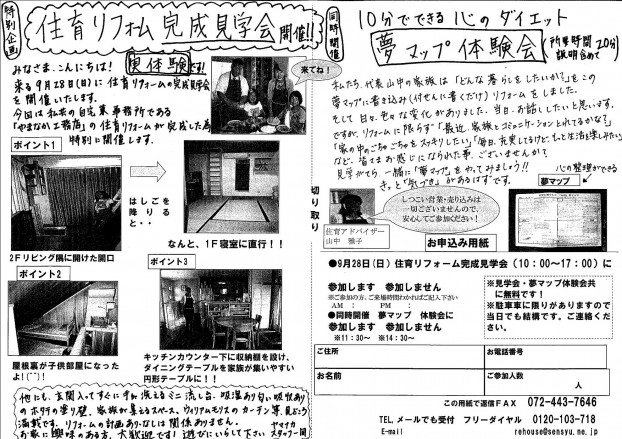 特別企画
住育リフォム 完成見学会 開催!!
みなさま、こんにちは! 実体験です!
来る9月28日(日)に住育リフォームの完成見学会
を開催いたします。
今回は私共の自宅兼事務所である
「やまなか工務店」の住育リフォームが完成した為
特別に開催します。
来てね!
ポイント1
はしごを
降りる
と・・
2Fリビング隅に開けた開口
なんと、1F寝室に直行!!
ポイント2
屋根裏が子供部屋になった
よ!(^^)!
ポイント3
キッチンカウンター下に収納棚を設け、
ダイニングテーブルを家族が集いやすい
円形テーブルに!!
他にも、玄関入ってすぐに手が洗えるミニ流し台、吸湿あり匂い吸収あり
のホタテの塗り壁、家族が集えるスペース、ウィリアムモリスのカーテン等、見どころ
満載です。リフォームの計画あり・なしは関係ありません。
お家に興味のある方、大歓迎です!遊びにいらして下さい
ヤマナカ
スタッフ一同
切り取り
同時開催
10分でできる!心のダイエット
夢マップ体験会
(所要時間20分)
説明含めて
私たち、代表山中の家族は「どんな暮らしをしたいか?」をこの
夢マップに書き込み(付せんに書くだけ)リフォームをしました。
そして日々、色々な変化がありました。当日、お話ししたいと思います。
ですが、リフォームに限らず“最近、家族とコミュニケーションとれてるかな?」
「家の中のごちゃごちゃをスッキリしたい」「毎日、充実してるけど、もっと生活を楽しみたい」
など、皆さまお感じになられた事、ございませんか?
見学がてら、一緒に「夢マップ」をやってみましょう!!
きっと“気づき”があるはずです。
しつこい営業・売り込みは
一切ございませんので、
安心してご参加ください!
住育アドバイザー
山中 雅子
心の整理ができる
夢マップ
お申込み用紙
●9月28日(日)住育リフォーム完成見学会(10:00~17:00)に
参加します 参加しません
※ご参加の方、ご来場時間わかればご記入下さい
AM : PM :
●同時開催 夢マップ 体験会に
参加します 参加しません
※11:30~ ※14:30~
※見学会・夢マップ体験会共
に無料です!
※駐車車に限りがありますので
当日でも結構です。ご連絡くだ
さい。
ご住所
お電話番号
お名前
ご参加人数
人
この用紙で返信FAX 072-443-7646
TEL、メールでも受付 フリーダイヤル 0120-103-718
E-mail rehouse@sensyu.ne.jp